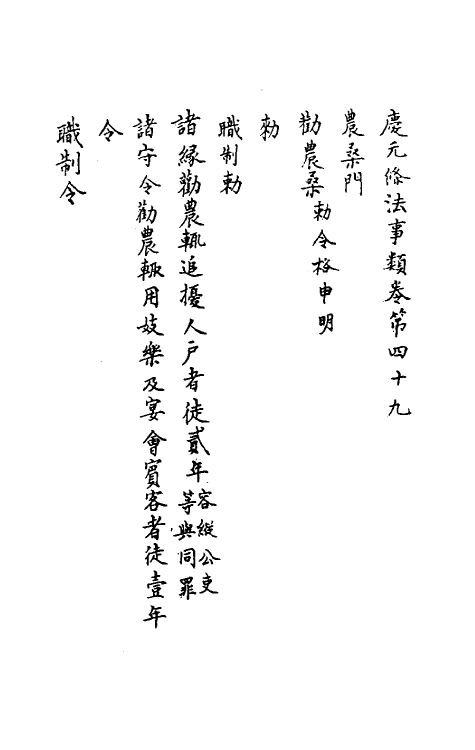 慶元條法事類卷第四十九
農桑門
勸農桑勅令格申明
勅
職制勅
諸緣勸農輒追擾人戶者徒貳年容縱公吏等與同罪
諸守令勸農輒用妓樂及宴會賓客者徒壹年
令
職制令